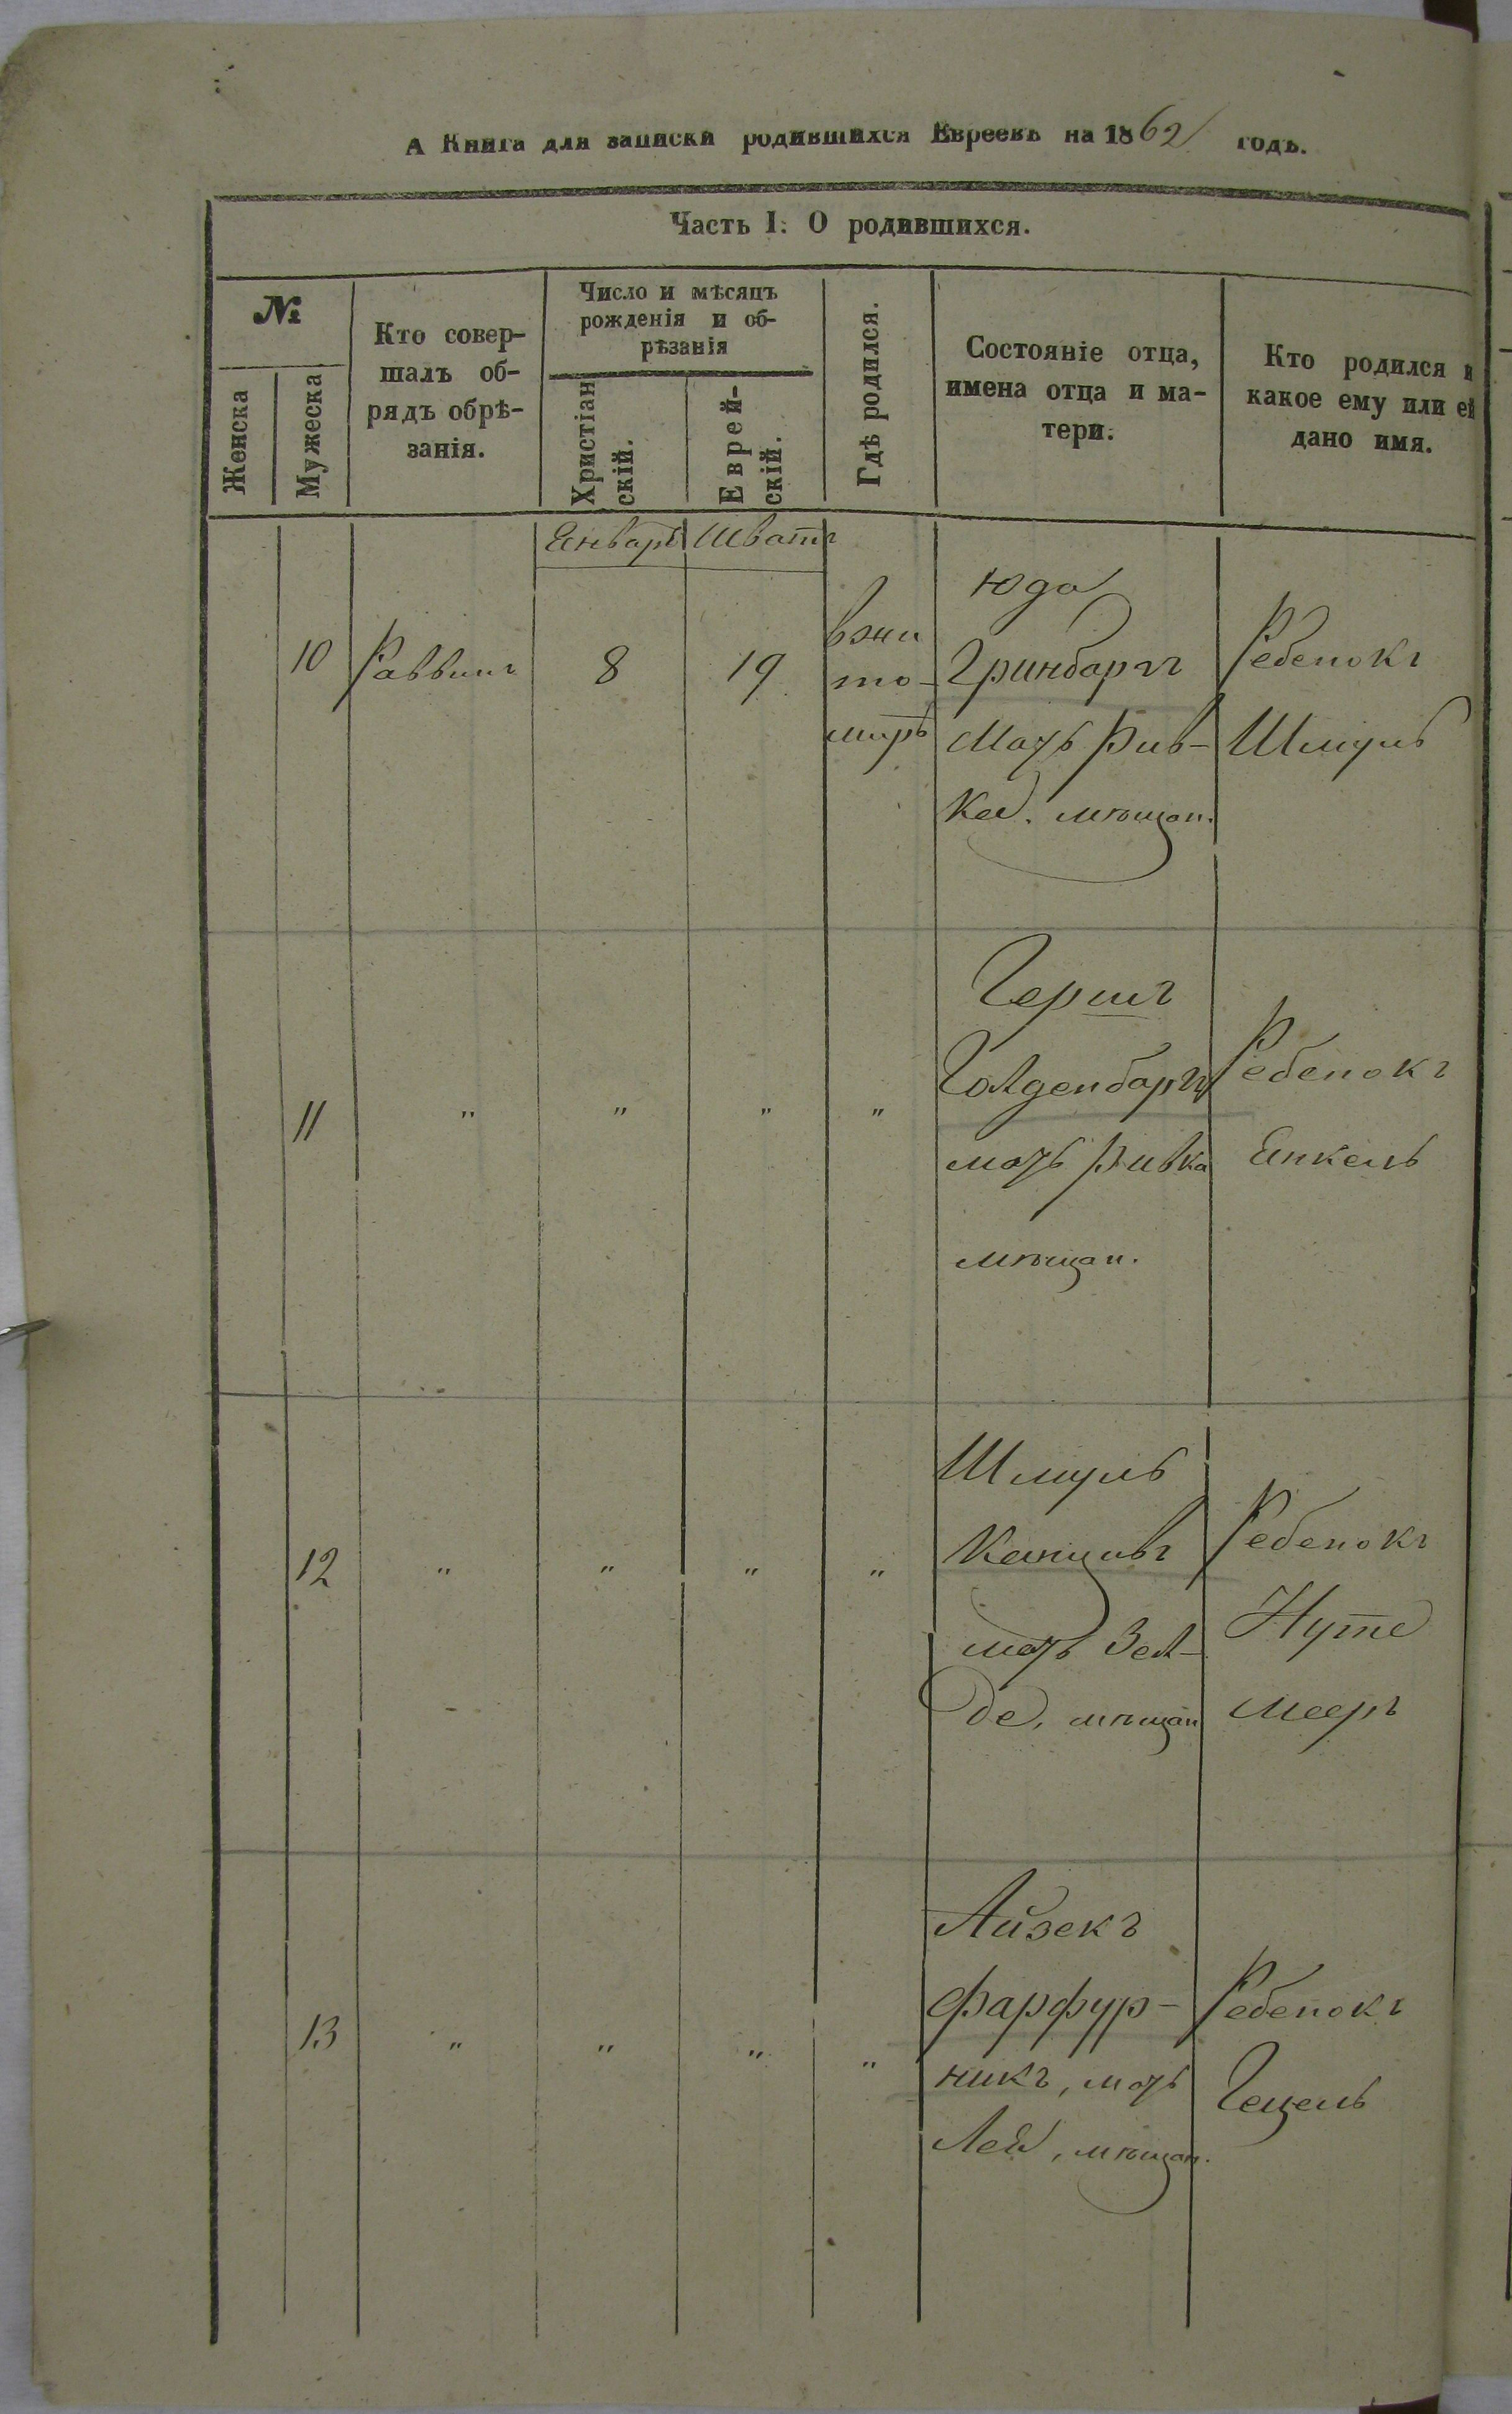 А Книга для записки родившихся Евреевъ на 1862 годъ.
Часть I. О родившихся.
№
Женска
Мужеска
Кто совер-
шалъ об-
рядъ обрѣ-
занія.
Число и мѣсяцъ
рожденія и об-
рѣзанія
Христіан
скій.
Еврей-
скій.
Гдѣ родился.
Состояніе отца,
имена отца и ма-
тери.
Кто родился и
какое ему или ей
дано имя.
Январь Шватъ
10 Раввинъ 8 19
вжи
то-
мирѣ
Юда
Гринбаргъ
Мать Рив-
ка. мѣщан.
Ребенокъ
Шмуль
11 " " " "
Гершъ
Голденбаргъ
мать Ривка
мѣщан.
Ребенокъ
Енкель
12 " " " "
Шмуль
мать Зел-
де, мѣщан
Ребенокъ
Нуте
Мееръ
13 " " " "
Айзекъ
Фарфур-
никъ, мать
Лея, мѣщан.
Ребенокъ
Гецель